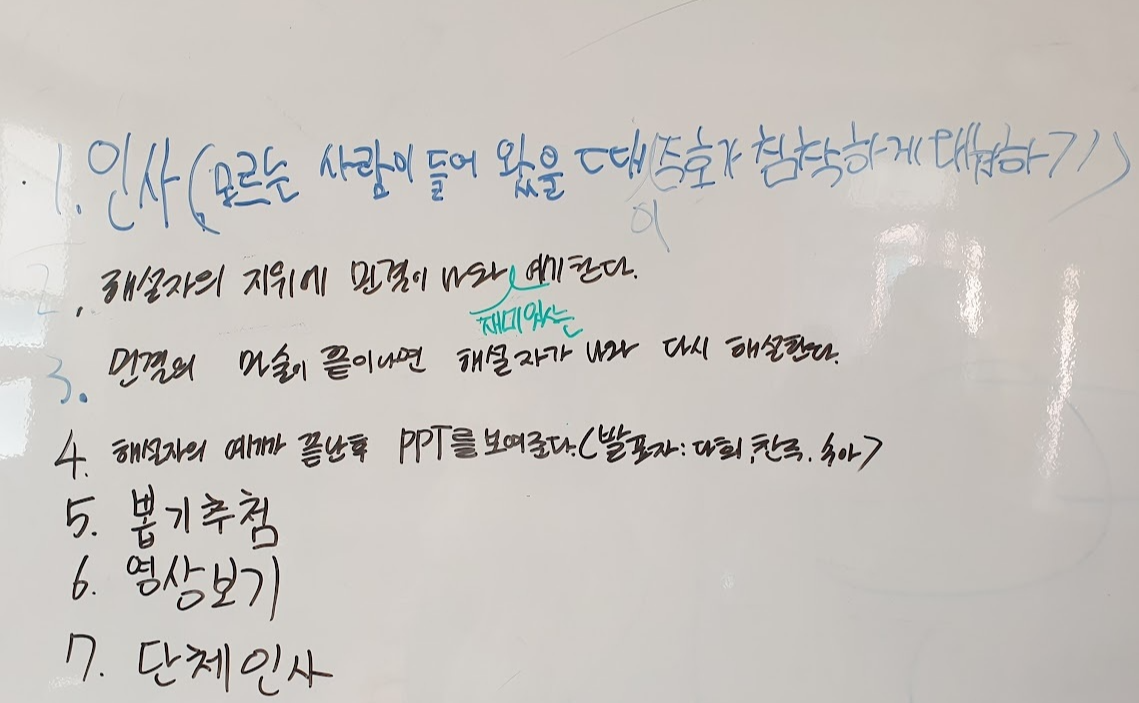 1. 인사(모르는 사람이 들어 왔을 때(주호가 침착하게 대처하기))
이
2. 해설자의 지위에 민결이 나와 얘기한다.
재미있는
3. 민결의 마술이 끝이나면 해설자가 나와 다시 해설한다.
4. 해설자의 얘기가 끝난후 PPT를 보여준다.(발표자: 다희,찬국.
5. 뽑기추첨
6. 영상보기
7. 단체인사